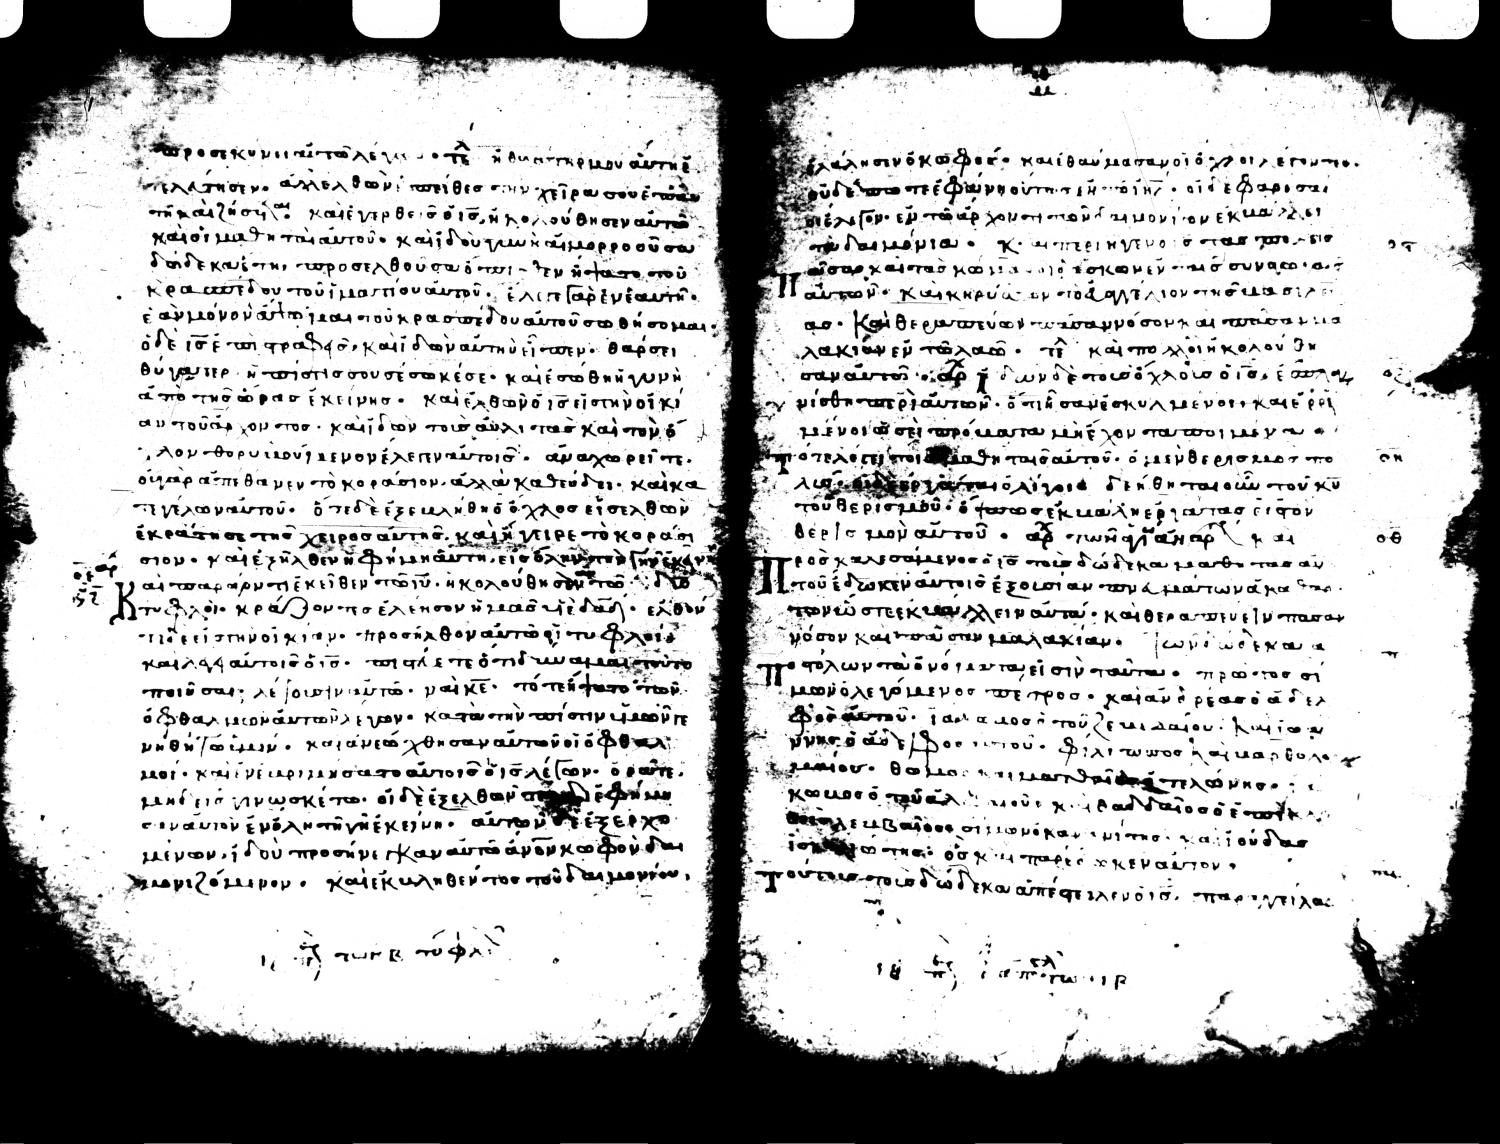 προσεκύνει αὐτῶ λέγων· τε ἡ θυγάτηρ μου ἄρτι ἐ
τελεύτησεν· ἀλλ ελθὼν ἐπίθες τὴν χεῖρα σου ἐπ αὐ
τὴν καὶ ζήσεται καὶ ἐγερθεὶς ὁ ις, ἠκολούθησεν αὐτῶ
καὶ οἱ μαθηταὶ αὐτοῦ· καὶ ἰδοὺ γυνὴ αἱμορροοῦσα
δώδεκα ἔτη, προσελθοῦσα ὄπισθεν ἥψατο τοῦ
κρασπέδου τοῦ ἱματίου αὐτοῦ· ἔλεγε γὰρ ἐν ἑαυτῆ·
ἐὰν μόνον ἅψωμαι τοῦ κρασπέδου αὐτοῦ σωθήσομαι·
ὁ δὲ ις ἐπιστραφεὶς, καὶ ἰδὼν αὐτὴν εἶπεν· θάρσει
θύγατερ ἡ πίστις σου σέσωκέ σε· καὶ ἐσώθη ἡ γυνὴ
ἀπὸ τῆς ὥρας ἐκείνης· καὶ ἐλθὼν ὁ ις εἰς τὴν οἰκί
αν τοῦ ἄρχοντος· καὶ ἰδὼν τοὺς αὐλητὰς καὶ τὸν ὄ
χλον θορυβούμενον ἔλεγεν αὐτοῖς· ἀναχωρεῖτε·
οὐ γὰρ ἀπέθανεν τὸ κοράσιον, ἀλλὰ καθεύδει· καὶ κα
τεγέλων αὐτοῦ· ὅτε δὲ ἐξεβλήθη ὁ ὄχλος εἰσελθὼν
ἐκράτησε τῆς χειρὸς αὐτῆς, καὶ ἠγείρε τὸ κορά
σιον· καὶ ἐξῆλθεν ἡ φήμη αὕτη εἰς ὅλην τὴν γῆν ἐκείν
Και παράγοντι ἐκεῖθεν τῶ ιυ· ἠκολούθησαν αὐτῶ δύο
τυφλοὶ· κράζοντες ἐλέησον ἡμᾶς υἱὲ δαδ· ἐλθόν
τι δὲ εἰς τὴν οἰκίαν· προσῆλθον αὐτῶ οἱ τυφλοί·
και λέγει αὐτοῖς ὁ ις· πιστεύετε ὅτι δύναμαι τοῦτο
ποιῆσαι· λέγουσιν αὐτῶ· ναὶ κε· τότε ἥψατο τῶν
ὀφθαλμῶν αὐτῶν λέγων· κατὰ τὴν πίστιν ὑμῶν γε
νηθήτω ὑμῖν· καὶ ἀνεώχθησαν αὐτῶν οἱ ὀφθαλ
μοί· καὶ ἐνεβριμήσατο αὐτοῖς ὁ ις λέγων· ὁρᾶτε·
μηδεὶς γινωσκέτω· οἱ δὲ ἐξελθόν διεφήμι
σαν αὐτὸν ἐν ὅλη τῆ γῆ ἐκείνη· αὐτῶν δὲ ἐξερχο
μένων, ἰδοὺ προσήνεγκαν αὐτῶ ἄνον κωφὸν δαι
μονιζόμενον· καὶ ἐκβληθέντος τοῦ δαιμονίου,
τῶν β τυφλ
ἐλάλησεν ὁ κωφός· καὶ ἐθαύμασαν οἱ ὄχλοι λέγοντες·
οὐδέποτε ἐφάνη οὕτως ἐν τῶ ιηλ· οἱ δὲ φαρισαι
οι ἔλεγον· ἐν τῶ ἄρχοντι τῶν δαιμονίων ἐκβάλλει
τὰ δαιμόνια· Και περιῆγεν ὁ ις τὰς πόλεις
πάσας καὶ τὰς κώμας διδάσκων ἐν ταῖς συναγωγαῖς
αὐτῶν· καὶ κηρύσσων τὸ εὐαγγέλιον τῆς βασιλεί
ας· Καὶ θεραπεύων πᾶσαν νόσον καὶ πᾶσαν μα
λακίαν ἐν τῶ λαῶ· τε καὶ πολλοὶ ἠκολούθη
σαν αὐτῶ· ἀρ Ιδὼν δὲ τοὺς ὄχλους ὁ ις, ἐσπλαγ
νίσθη περὶ αὐτῶν· ὅτι ἦσαν ἐσκυλμένοι, καὶ ἐρρι
μένοι ὡσεὶ πρόβατα μὴ ἔχοντα ποιμένα·
Τότε λέγει τοῖς μαθηταῖς αὐτοῦ· ὁ μὲν θερισμὸς πο
λύς· οἱ δὲ ἐργάται ὀλίγοι· δεήθητε οὖν τοῦ κυ
τοῦ θερισμοῦ· ὅπως ἐκβάλη ἐργάτας εἰς τὸν
θερισμὸν αὐτοῦ· ἀρ τῶν ἁγί ἀναρ και
Προσκαλεσάμενος ὁ ις τοὺς δώδεκα μαθητὰς αὐ
τοῦ ἔδωκεν αὐτοῖς ἐξουσίαν πνάμάτων ἀκαθάρ
των ὥστε ἐκβάλλειν αὐτά· καὶ θεραπεύειν πᾶσαν
νόσον καὶ πᾶσαν μαλακίαν· τῶν δώδεκα α
Ποστόλων τὰ ὀνόματα, εἰσὶν ταῦτα· πρῶτος σί
μων ὁ λεγόμενος πέτρος· καὶ ἀνδρέας ὁ ἀδελ
φὸς αὐτοῦ· ἰάκωβος ὁ τοῦ ζεβεδαίου· καὶ ἰωάν
νης ὁ ἀδελφὸς αὐτοῦ· φίλιππος καὶ βαρθολο
μαῖος· θωμὰς καὶ ματθαῖος ὁ τελώνης·
ιάκωβος ὁ τοῦ ἀλφαίου καὶ λαδδαῖος ὁ ἐπικλη
θεὶς λεββαῖος σίμων ὁ κανανίτης· καὶ ἰούδας
ἰσκαριώτης· ὃς και παρέδωκεν αὐτόν·
Τούτους τοὺς δώδεκα ἀπέστειλεν ὁ ις, παραγγείλας